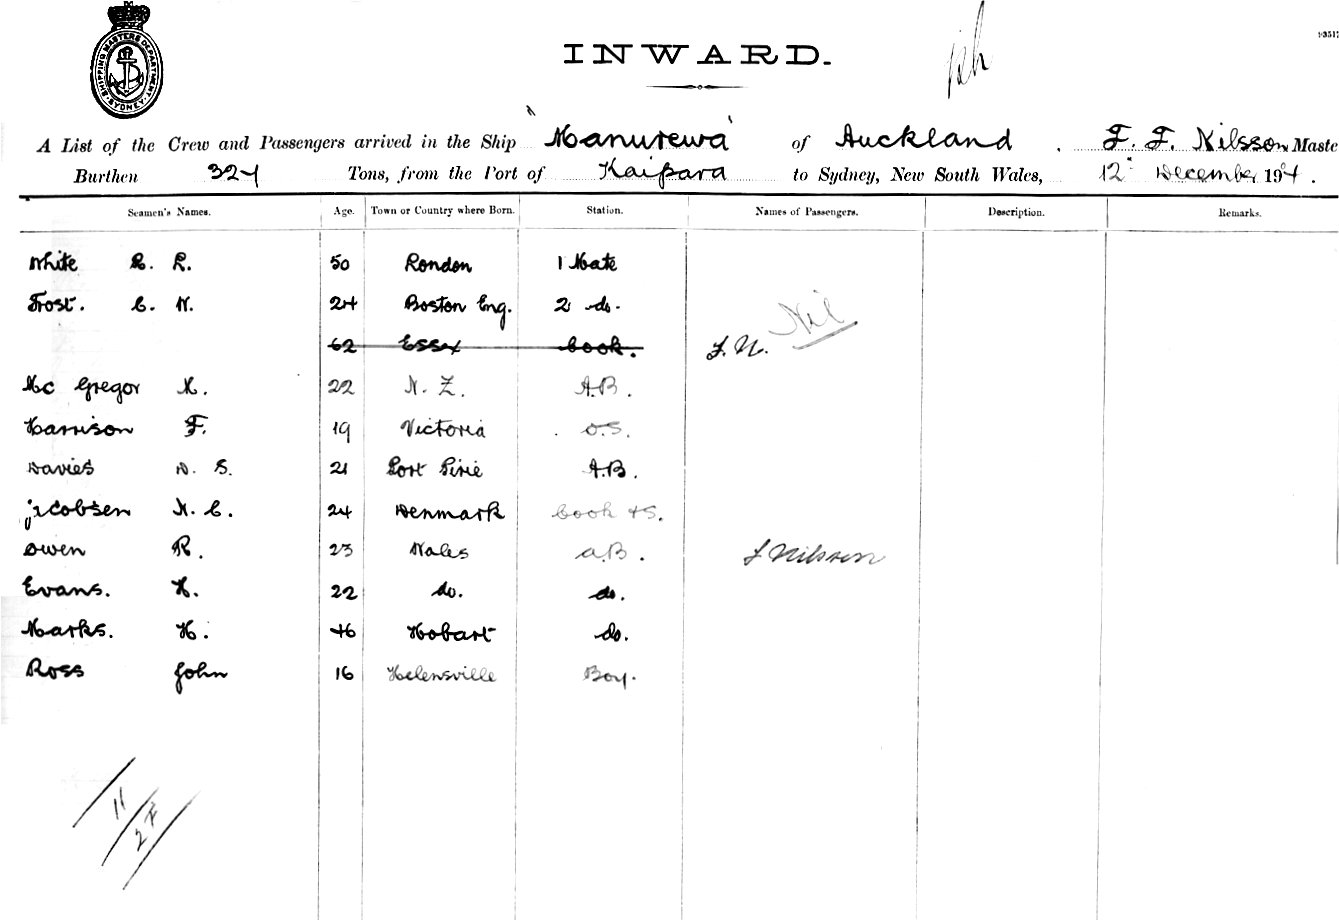 SHIPPING MASTERS DEPARTMENT SYDNEY
INWARD.
A List of the Crew and Passengers arrived in the Ship "Manurewa" of Auckland . F. F. Nilsson Maste
Burthen 321 Tons, from the Port of Kaipara to Sydney, New South Wales, 12 December 191 .
Seamen's Names. Age. Town or Country where Born. Station. Names of Passengers. Description. Remarks.
White L. R. 50 London 1 Mate
Frost. C. W. 24 Boston Eng. 2 do.
Nil
62 Essex Cook. F.N.
Mc Gregor K. 22 N. Z. A.B.
Harrison F. 19 Victoria O.S.
Davies D. S. 21 Port Pirie A.B.
Jacobsen N. C. 24 Denmark Cook + S.
Owen R. 23 Wales A.B.
F Nilsson
Evans. H. 22 do. do.
Marks. H. 46 Hobart do.
Ross John 16 Helensville Boy.
11
2 F